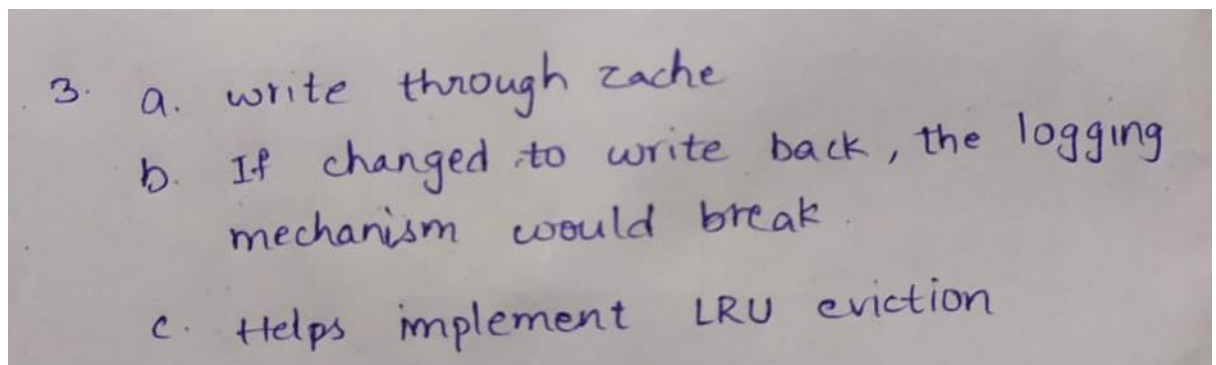 3. a. write through cache
b. If changed to write back, the logging
mechanism would break.
c. Helps implement LRU eviction